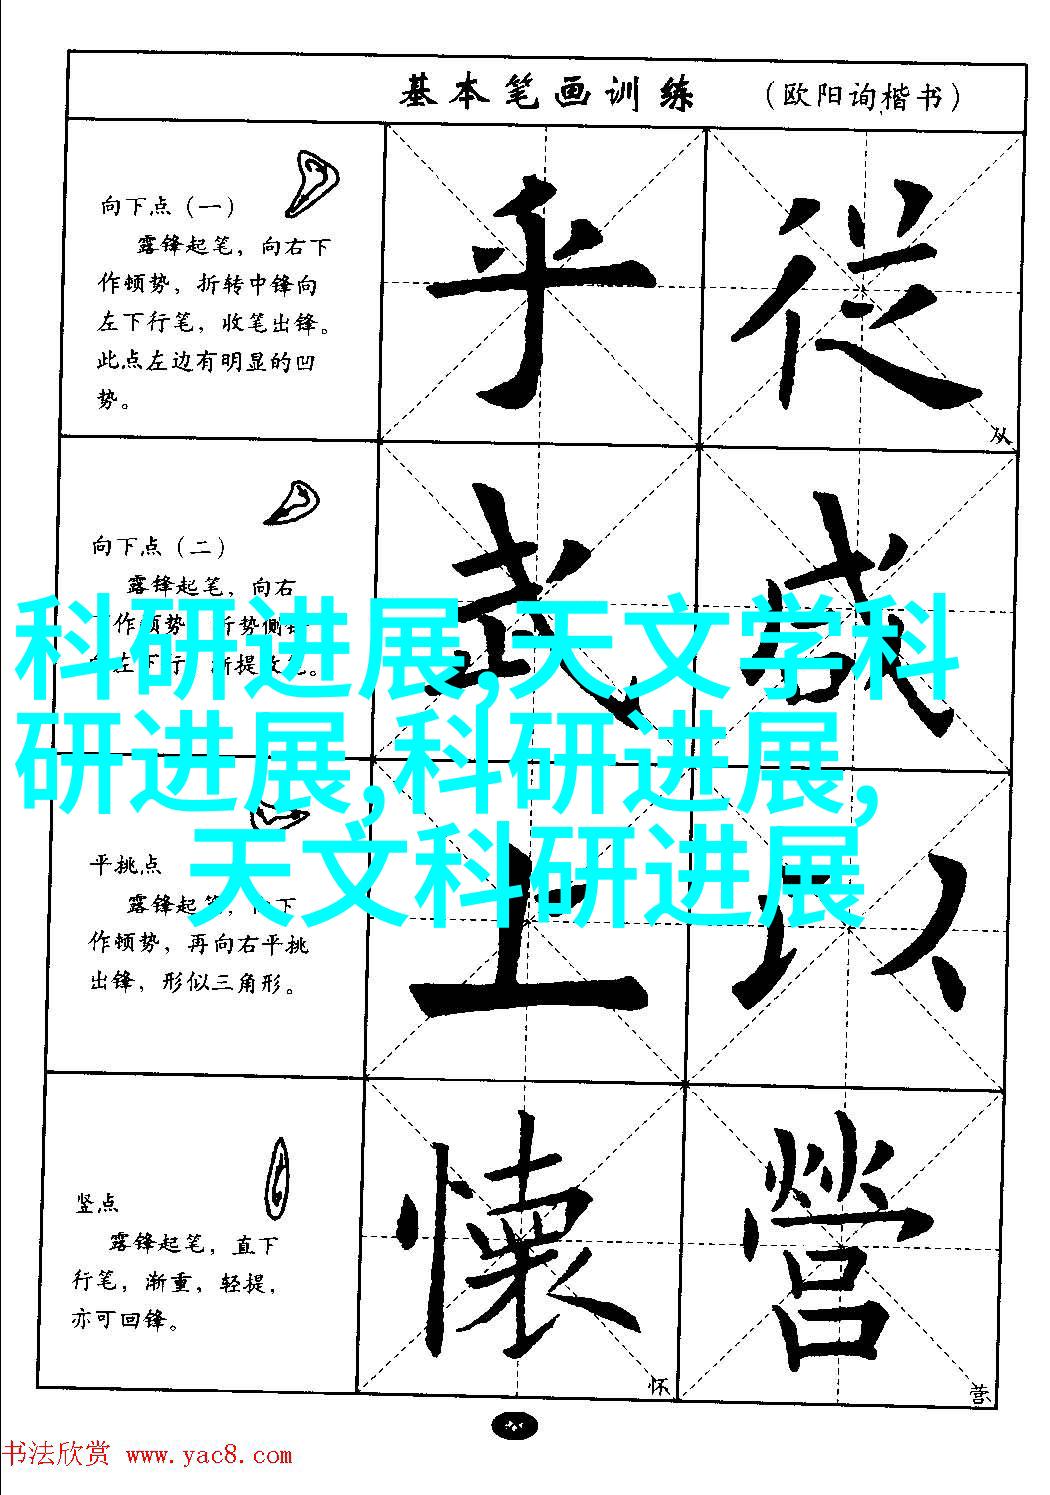 基本笔画训练 （欧阳询楷书）
向下点（一）
露锋起笔，向右下
作顿势，折转中锋向
左下行笔，收笔出锋。
此点左边有明显的凹
势。
乎 從
从
向下点（二）
露锋起笔，向右
作顿势
左下行
武 感
科研进展,天文学科
研进展,科研进展,
天文科研进展
平挑点
露锋起笔，向下
作顿势，再向右平挑
出锋，形似三角形。
上 以
竖点
露锋起笔，直下
行笔，渐重，轻提，
亦可回锋。
懷 營
怀 营
书法欣赏 www.yac8.com